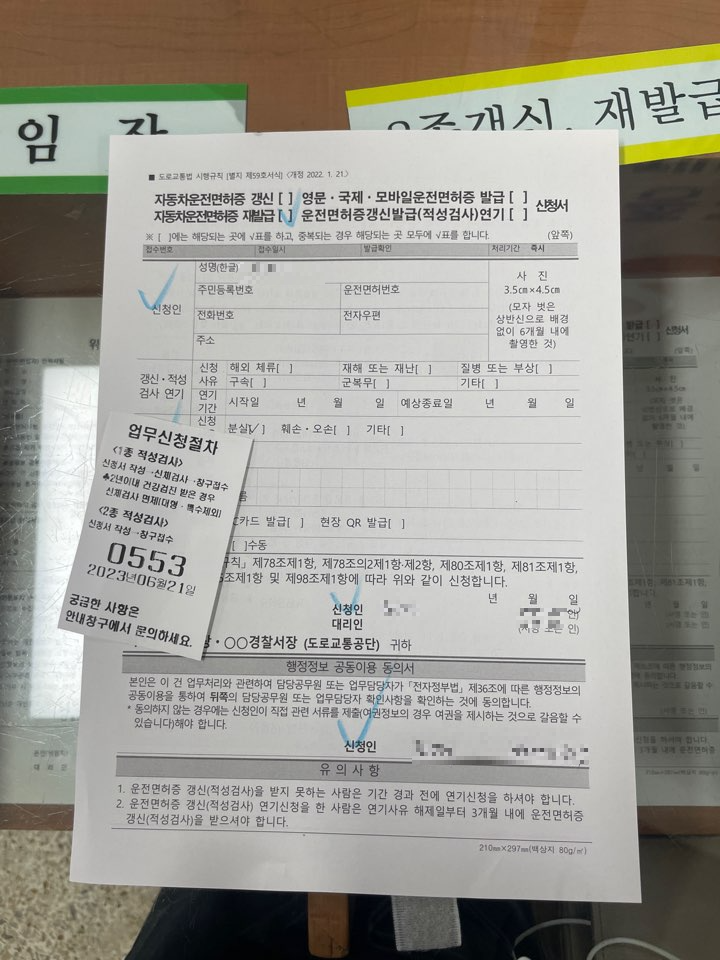 임
2종갱신, 재발급
■ 도로교통법 시행규칙 [별지 제59호서식] <개정 2022. 1. 21.>
자동차운전면허증 갱신 [ ] 영문·국제·모바일운전면허증 발급 [ ]
자동차운전면허증 재발급 [√] 운전면허증갱신발급(적성검사)연기 [ ]
신청서
※ [ ]에는 해당되는 곳에 √표를 하고, 중복되는 경우 해당되는 곳 모두에 √표를 합니다. (앞쪽)
접수번호 접수일시 발급확인 처리기간 즉시
신청인
성명(한글)
주민등록번호 운전면허번호
전화번호 전자우편
주소
사 진
3.5㎝×4.5㎝
(모자 벗은
상반신으로 배경
없이 6개월 내에
촬영한 것)
갱신·적성
검사 연기
신청
사유
해외 체류[ ] 재해 또는 재난[ ] 질병 또는 부상[ ]
구속[ ] 군복무[ ] 기타[ ]
연기
기간
시작일 년 월 일 예상종료일 년 월 일
신청
분실[√] 훼손·오손[ ] 기타[ ]
카드 발급[ ] 현장 QR 발급[ ]
[ ]수동
규칙」 제78조제1항, 제78조의2제1항·제2항, 제80조제1항, 제81조제1항,
조제1항 및 제98조제1항에 따라 위와 같이 신청합니다.
년 월 일
신청인
대리인 (서명 또는 인)
장·○○경찰서장 (도로교통공단) 귀하
행정정보 공동이용 동의서
본인은 이 건 업무처리와 관련하여 담당공무원 또는 업무담당자가 「전자정부법」 제36조에 따른 행정정보의
공동이용을 통하여 뒤쪽의 담당공무원 또는 업무담당자 확인사항을 확인하는 것에 동의합니다.
* 동의하지 않는 경우에는 신청인이 직접 관련 서류를 제출(여권정보의 경우 여권을 제시하는 것으로 갈음할 수
있습니다)해야 합니다.
신청인
유 의 사 항
1. 운전면허증 갱신(적성검사)을 받지 못하는 사람은 기간 경과 전에 연기신청을 하셔야 합니다.
2. 운전면허증 갱신(적성검사) 연기신청을 한 사람은 연기사유 해제일부터 3개월 내에 운전면허증
갱신(적성검사)을 받으셔야 합니다.
210㎜×297㎜(백상지 80g/㎡)
업무신청절차
<1종 적성검사>
신청서 작성→신체검사→창구접수
♣2년이내 건강검진 받은 경우
신체검사 면제(대형·특수제외)
<2종 적성검사>
신청서 작성→창구접수
0553
2023년06월21일
궁금한 사항은
안내창구에서 문의하세요.